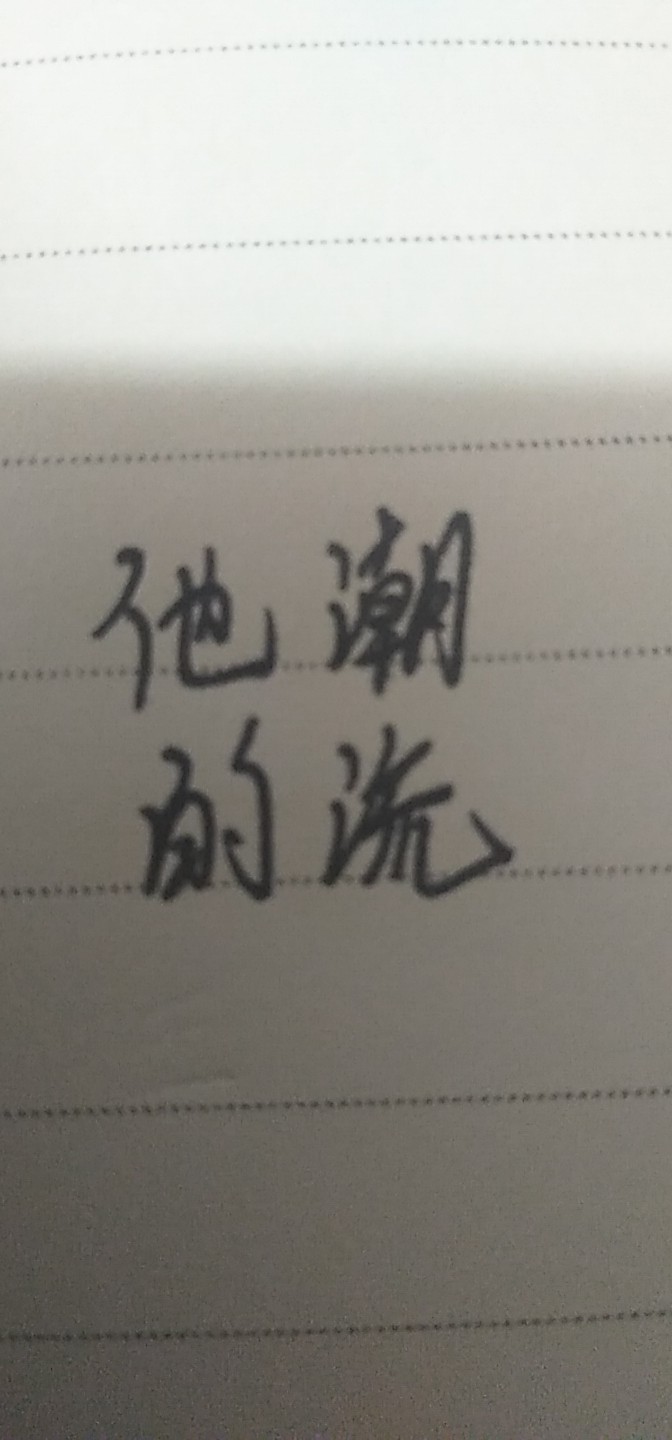 他潮
的流